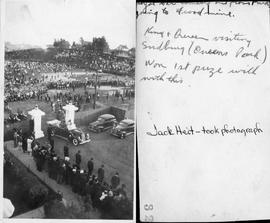 King & Queen visiting
Sudbury (Queens Park)
Won 1st prize with
with this
Jack Heit - took photograph
32